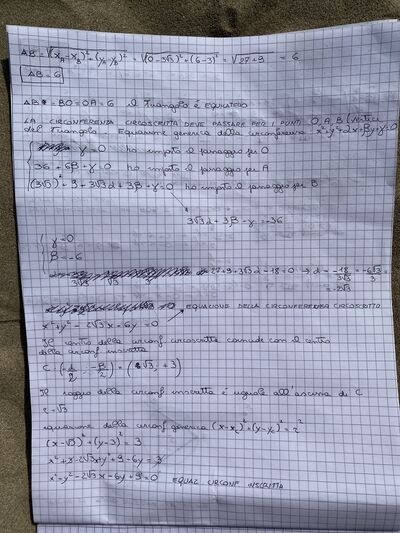 AB = √(x_A-x_B)²+(y_A-y_B)² = √(0-3√3)²+(6-3)² = √27+9 = 6
AB = 6
AB = BO = OA = 6 il Triangolo è EQUILATERO
LA CIRCONFERENZA CIRCOSCRITTA DEVE PASSARE PER I PUNTI O, A, B (vertici
del Triangolo. Equazione generica della circonferenza x²+y²+αx+βy+γ=0
γ=0 ho imposto il passaggio per O
36+6β+γ=0 ho imposto il passaggio per A
(3√3)²+9+3√3α+3β+γ=0 ho imposto il passaggio per B
3√3α+3β+γ=-36
γ=0
β=-6
27+9+3√3α-18=0 → α = -18/3√3 = -6√3/3 = -2√3
EQUAZIONE DELLA CIRCONFERENZA CIRCOSCRITTA
x²+y²-2√3x-6y=0
Il centro della circonf. circoscritta coincide con il centro
della circonf. inscritta
C (-α/2, -β/2) = (√3, +3)
Il raggio della circonf inscritta è uguale all'ascissa di C
r=√3
equazione della circonf generica (x-x_c)²+(y-y_c)²=r²
(x-√3)²+(y-3)²=3
x²+3-2√3x+y²+9-6y=3
x²+y²-2√3x-6y+9=0 EQUAZ CIRCONF INSCRITTA